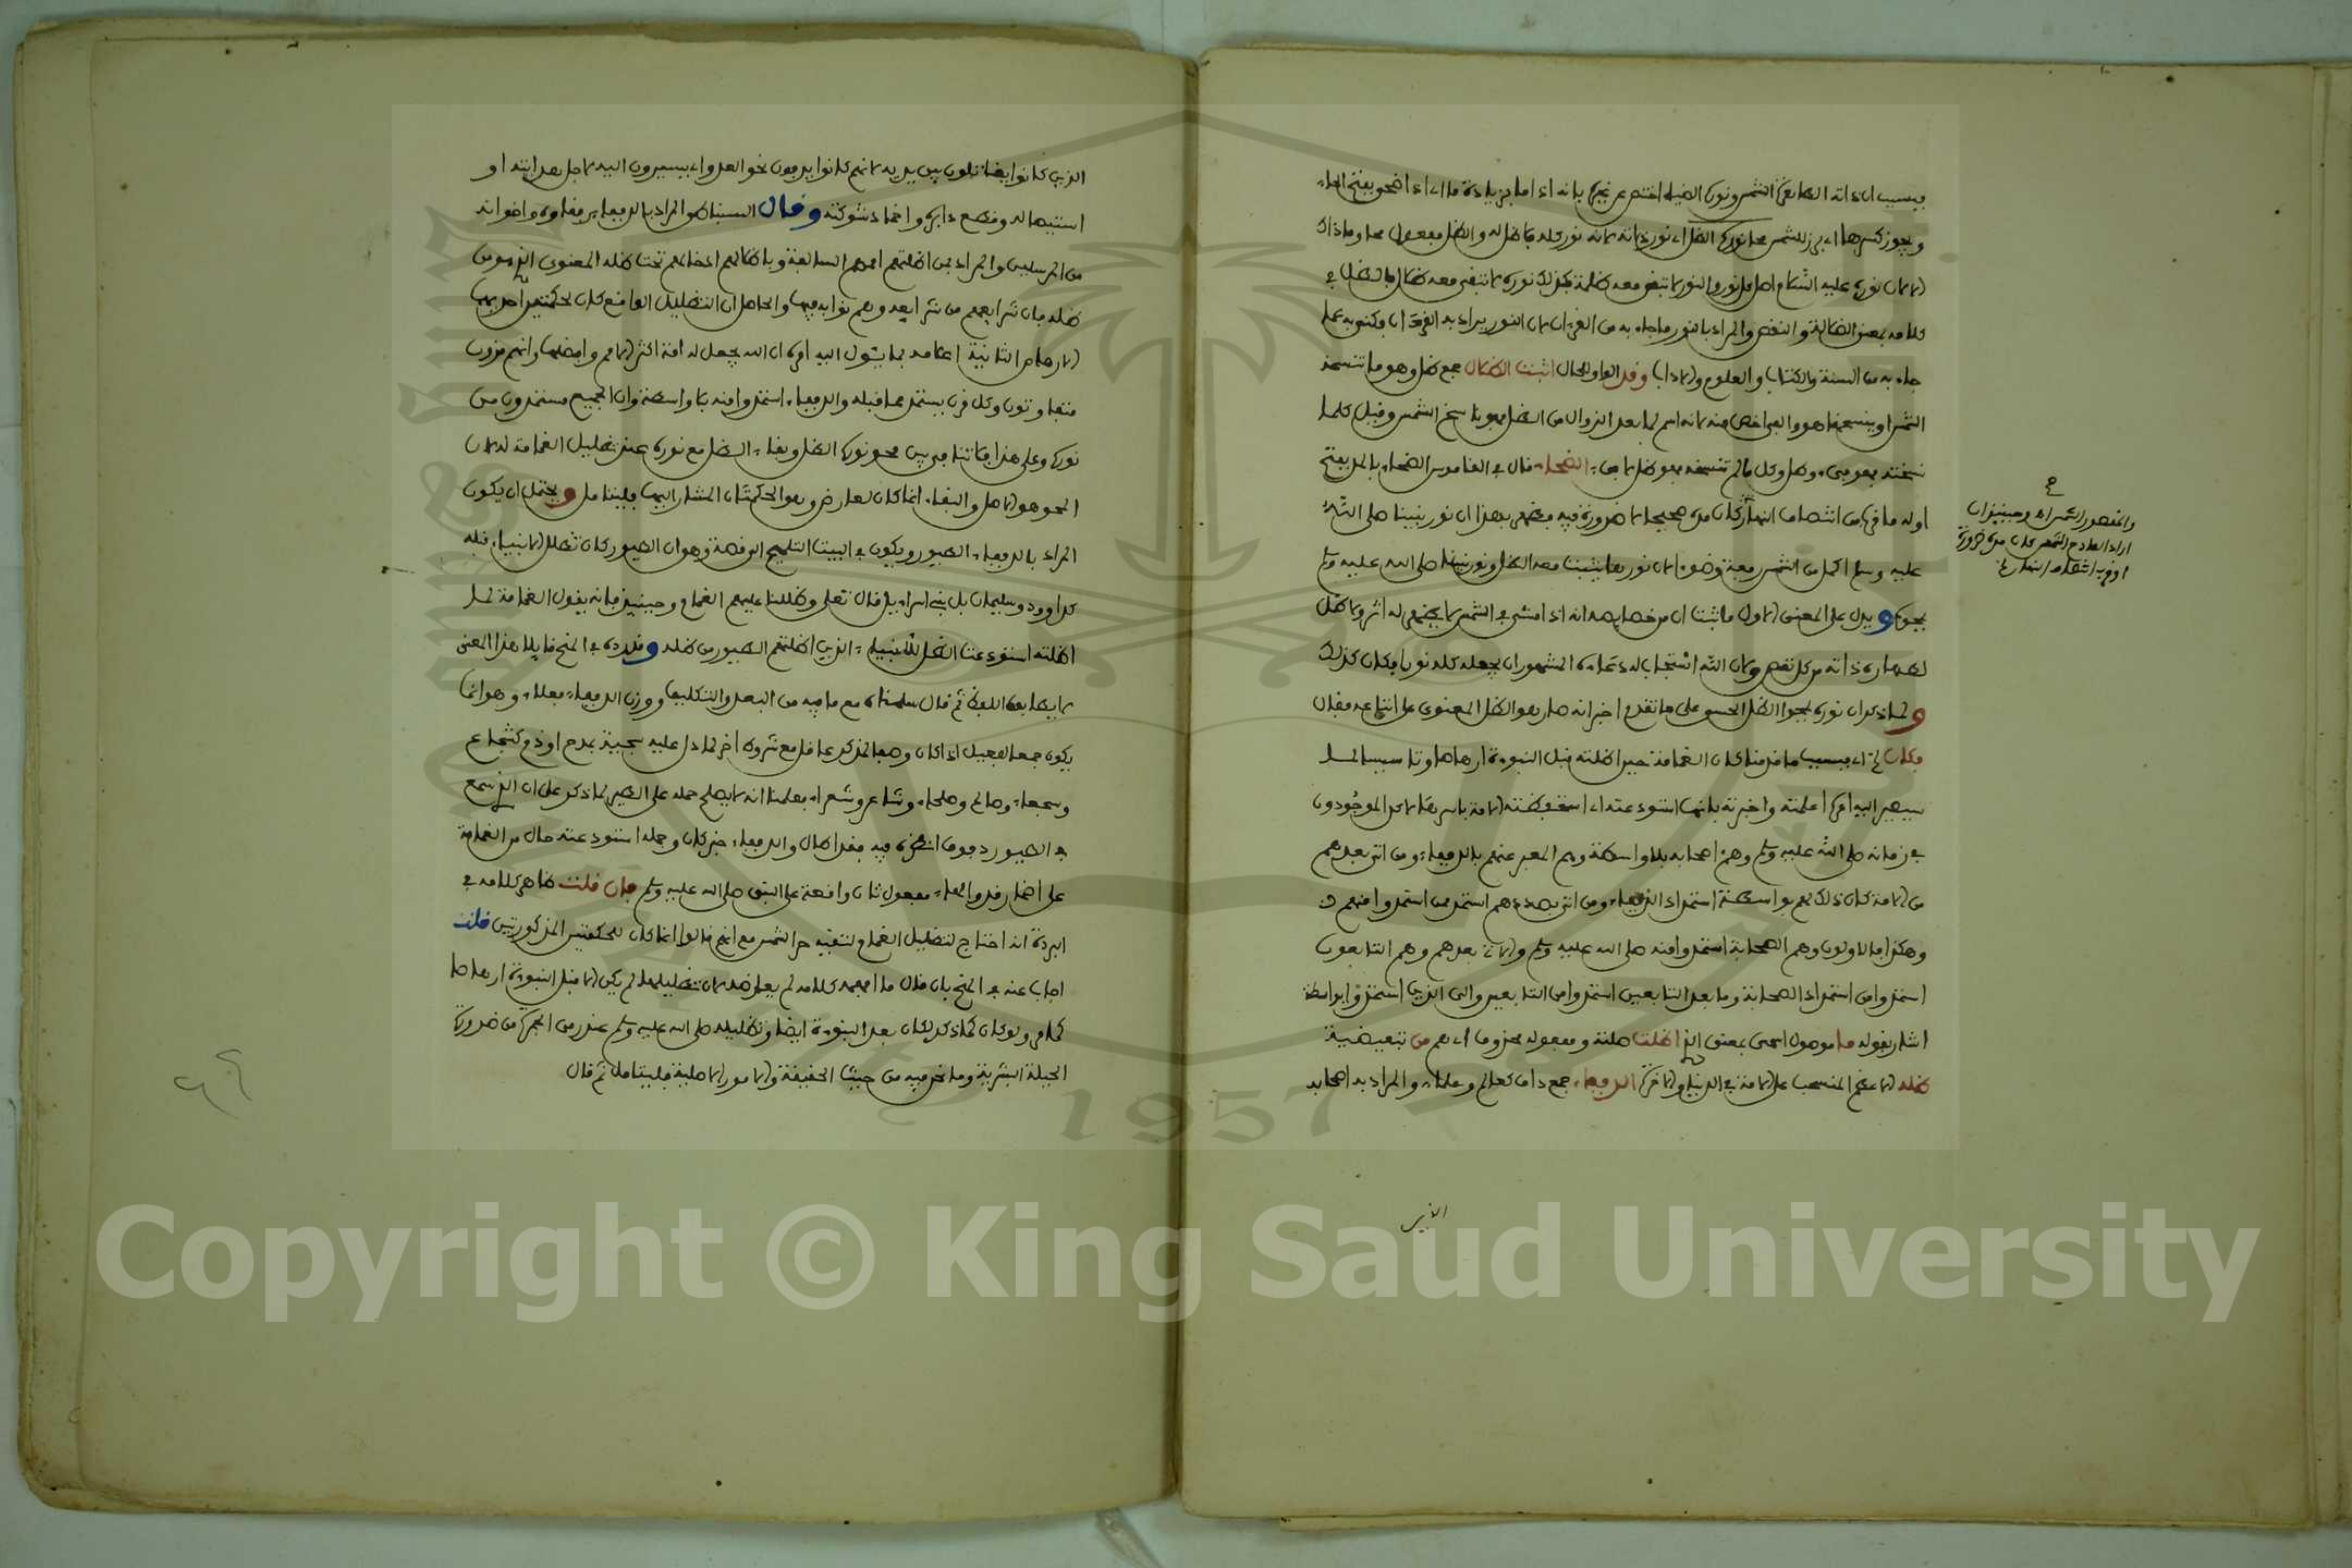 فبسبب ان ذاته الطاهرة الشمس ونورك الضياء اختص عن غيره بانه اذا ما برز يا ذكاء ما اي اذا ضحى بفتح الحاء
ويجوز كسرها اي برز للشمس محا نورك الظل اي نور ذاته لانه نور كله فلا ظل له والظل مفعول محا وماذاك
الا لان نوره عليه السلام اصل كل نور والنور لا تبقى معه ظلمة فكذلك نوره لا تبقى معه ظلال فالظل في
كلامه بمعنى الضلالة والنقص والمراد بالنور ما جاء به من القرءان لان النور يراد به القرءان فكنى به عما
جاء به من السنة والكتاب والعلوم والاداب وقد الواو للحال اثبت الظلال جمع ظل وهو ما تنسخه
الشمس او ينسخها هو والفيء اخص منه لانه اسم لما بعد الزوال من الظل فهو ناسخ الشمس وقيل كلما
نسخته فهو فيء وظل وكل ما لم تنسخه فهو ظل لا فيء الضحاء قال في القاموس الضحاء بالمد بفتح
اوله ما قرب من انتصاف النهار
عليه وسلم اكمل من الشمس رفعة وضوءا لان نورها يثبت معه الظل ونور نبينا صلى الله عليه وسلم
يمحوه ويدل على المعنى الاول ما ثبت ان من خصايصه انه اذا مشى في الشمس لا يظهر له اثر ولا ظل
لطهارة ذاته من كل نقص ولان الله استجاب له دعاءه المشهور ان يجعله كله نورا فكان كذلك
ولما ذكر ان نوره يمحو الظل الحسي على ما تقدم اخبر انه صار هو الظل المعنوي على اتباعه فقال
فكان اي بسبب ما قررنا كان الغمامة حين اظلته قبل النبوءة ارهاصا وتاسيسا لما
سيصير اليه امره اعلمته واخبرته بانها استودعته اي استحفظته الامة باسرها لا كل الموجودون
في زمانه صلى الله عليه وسلم وهم اصحابه بلا واسطة وهم المعبر عنهم بالدففاء ومن اتى بعدهم
من الامة كان ذلك لهم بواسطة استمداد الدففاء ومن اتى بعدهم استمد ممن استمدوا منهم
وهكذا فالاولون وهم الصحابة استمدوا منه صلى الله عليه وسلم والات بعدهم وهم التابعون
استمدوا من استمداد الصحابة وما بعد التابعين استمدوا من التابعين والى الذين استمدوا بواسطة
اشار بقوله ما موصول اسمي بمعنى الذي اظلت صلته ومفعوله محذوف اي هم من تبعيضية
ظله الاعظم المنسحب على الامة في الدنيا والاخرة الدففاء جمع داف كعالم وعلماء والمراد به اصحابه
والمقصور الشمس اه وحينيذ ان
اراد الناظم الشمس كان مده ضرورة
او قرب انتصاف النهار فلا
الذين
الذين كانوا يقاتلون بين يديه لانهم كانوا يدفون نحو العدو اي يسيرون اليه لاجل هدايته او
استيصاله وقطع دابره واخماد شوكته وقال السنباطي المراد بالدففاء رفقاؤه واخوانه
من المرسلين والمراد من اظلتهم اممهم السالفة وباظلالهم ادخالهم تحت ظله المعنوي الذي هو من
ظله فان شرايعهم من شرايعه وهم نوابه فيها والحاصل ان التظليل الواقع كان لحكمتين احداهما
الارهاص الثانية اعلامه بما يئول اليه امره ان الله يجعل له امة اكثر الامم وافضلها وانهم قرون
متفاوتون وكل قرن يستمد مما قبله والدففاء استمدوا منه بلا واسطة وان الجميع مستمدون من
نوره وعلى هذا فلا تنافي بين محو نوره الظل وبقاء الظل مع نوره عند تظليل الغمامة له لان
المحو هو الاصل والبقاء انما كان لعارض وهو الحكمتان المشار اليهما فليتامل ويحتمل ان يكون
المراد بالدففاء الطيور ويكون في البيت التلميح الى قصة وهو ان الطيور كان تظلل الانبياء قبله
كداوود وسليمان بل بني اسراءيل قال تعلى وظللنا عليهم الغمام وحينيذ فانه يقول الغمامة لما
اظلته استودعت الظل للانبياء الذين اظلتهم الطيور من ظله وقد رده في المنح قايلا هذا المعنى
لا يطابقه اللفظ ثم قال سلمناه مع ما فيه من البعد والتكليف ووزن الدففاء فعلاء وهو انما
يكون جمعا لفعيل اذا كان وصفا لمذكر عاقل مع شروط اخر لما دل عليه سجية مدح او ذم كشجاع
وسمحاء وصالح وصلحاء وشاعر وشعراء فعلمنا انه لا يصلح حمله على الطير لما ذكر على ان الذي سمع
في الطيور دفوف انتهى وفيه فقد اطال والدففاء خبر كان وجملة استودعته حال من الغمامة
على اضمار قد والهاء مفعول ثان واقعة على النبي صلى الله عليه وسلم فان قلت ظاهر كلامه في
البردة انه احتاج لتظليل الغمام لتقيه حر الشمس مع انهم قالوا انما كان للحكمتين المذكورتين قلت
اجاب عنه في المنح بان قال ما افهمه كلامه لم يعارضه لان تظليلها لم يكن الا قبل النبوءة ارهاصا
كما مر ولو كان كما ذكر لكان بعد النبوءة ايضا وتظليله صلى الله عليه وسلم عند رمي الجمرة من ضرورة
الجبلة البشرية وما نحن فيه من حيث الحقيقة والامور الاصلية فليتامل ثم قال
Copyright © King Saud University
1957